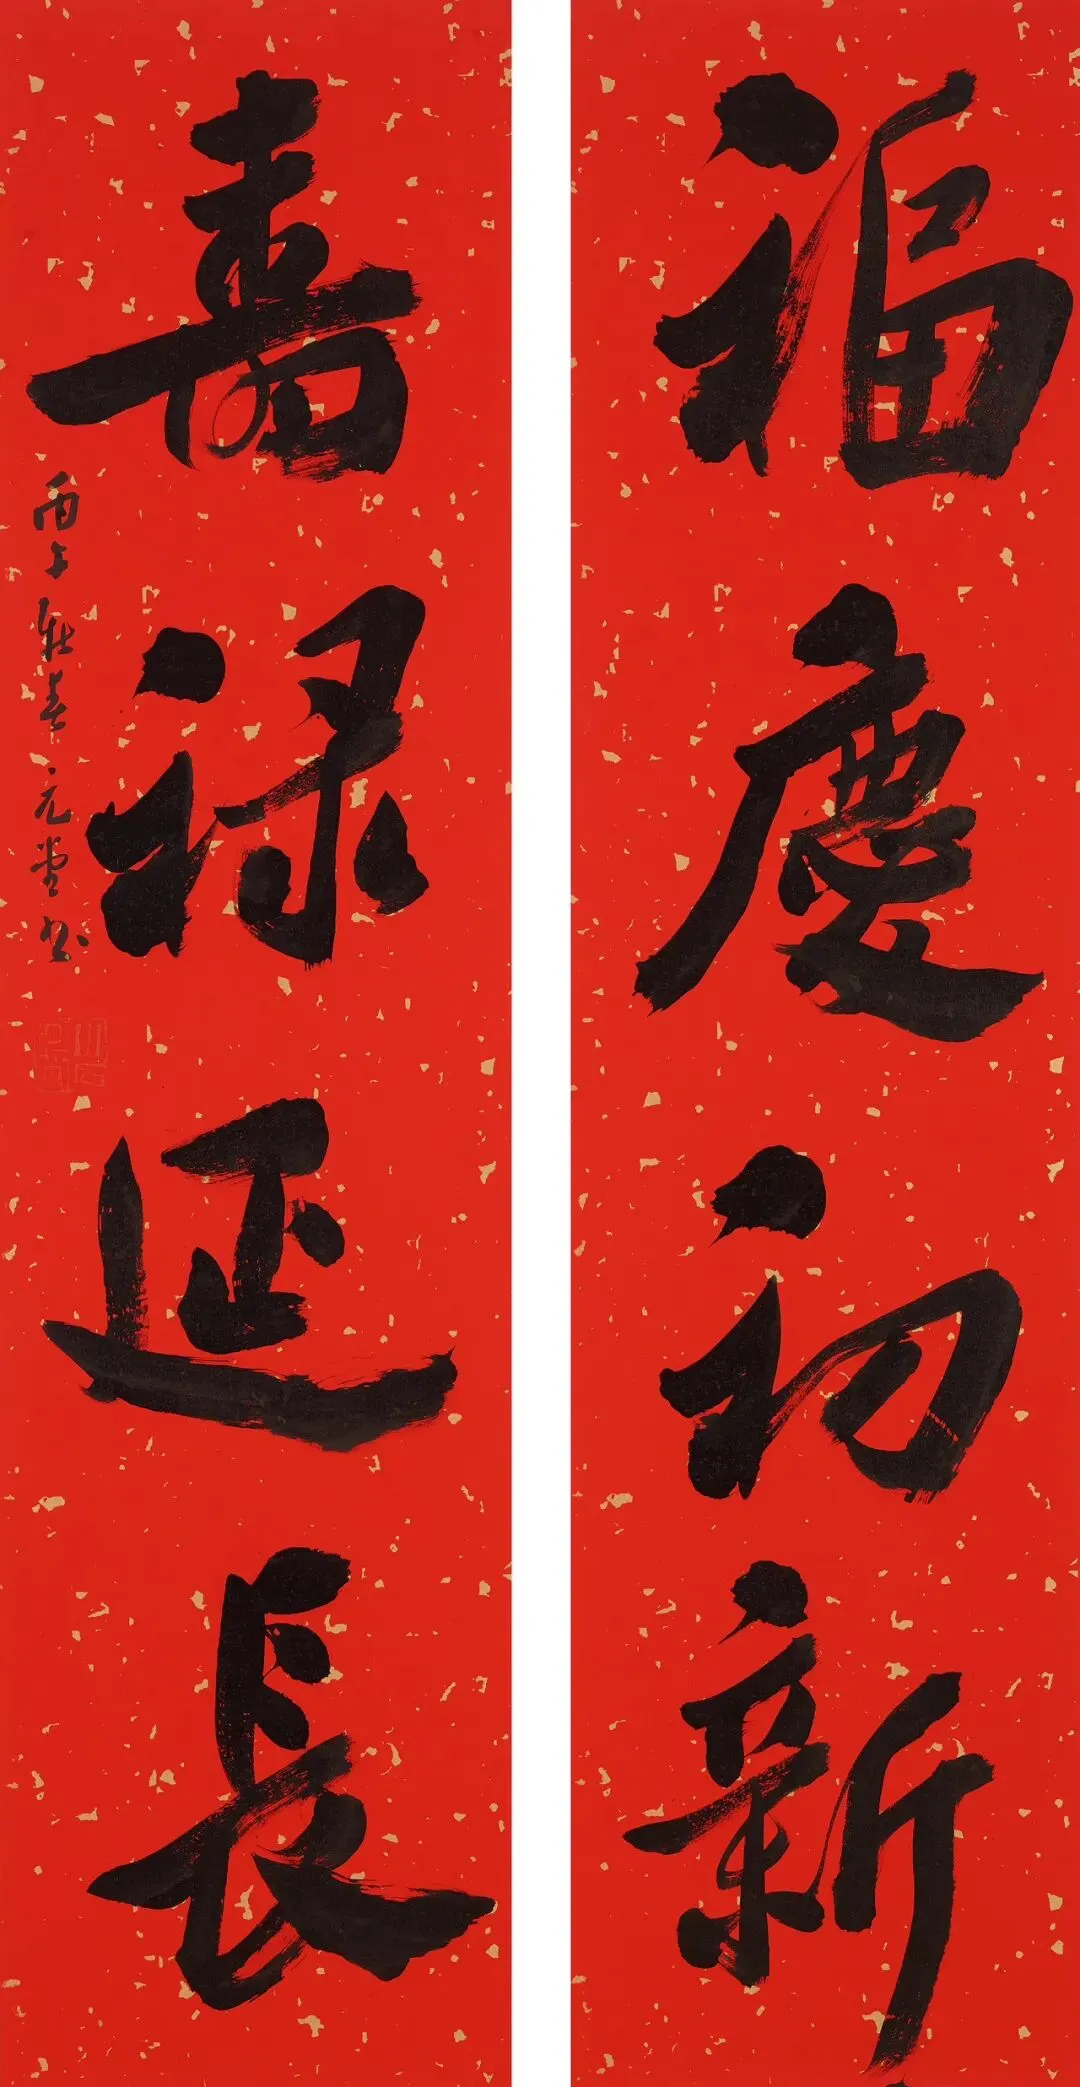 福慶初新
壽祿延長
丙午新春元堂書